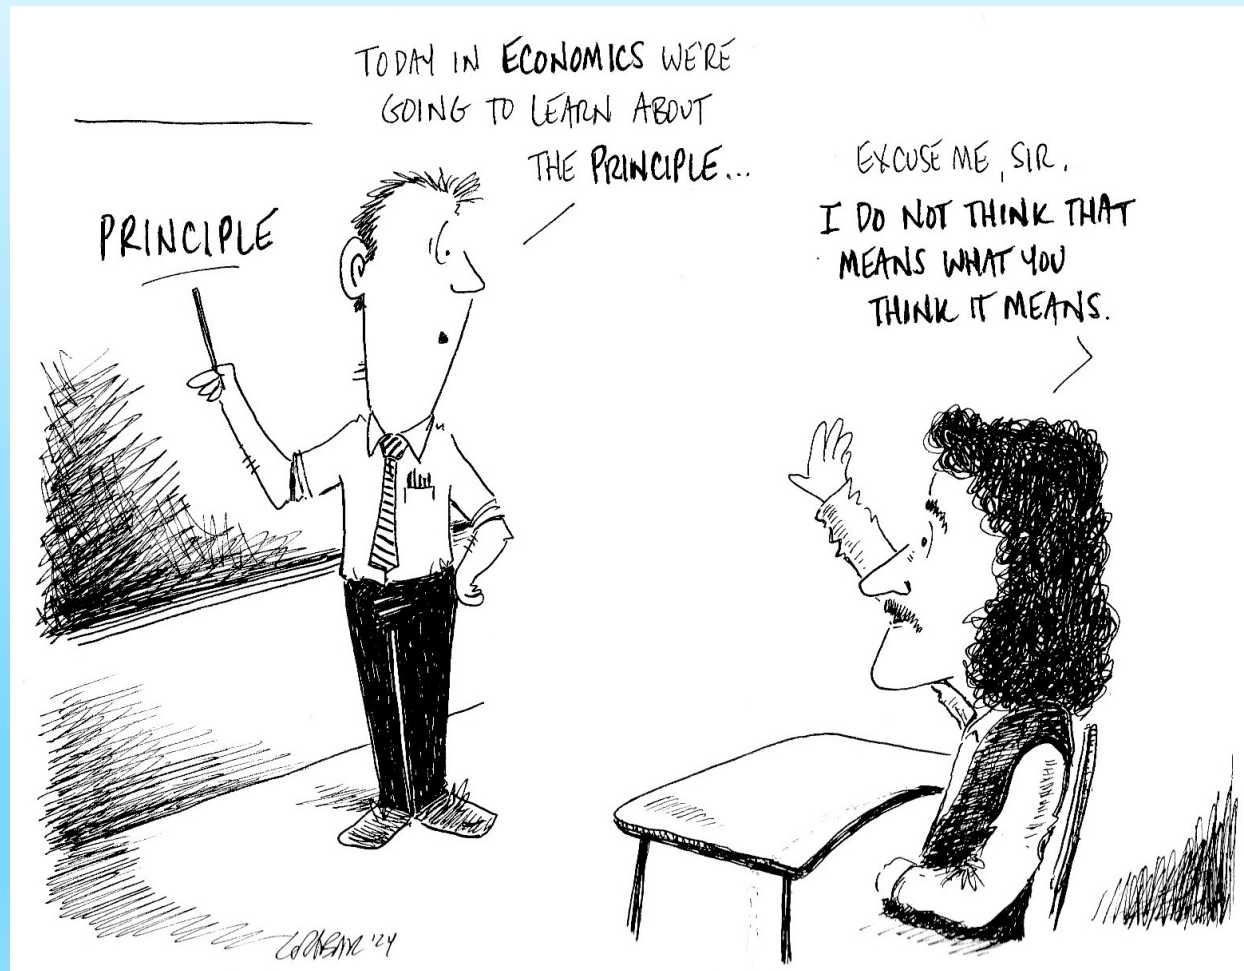 TODAY IN ECONOMICS WE'RE
GOING TO LEARN ABOUT
THE PRINCIPLE...
PRINCIPLE
EXCUSE ME, SIR.
I DO NOT THINK THAT
MEANS WHAT YOU
THINK IT MEANS.
'24